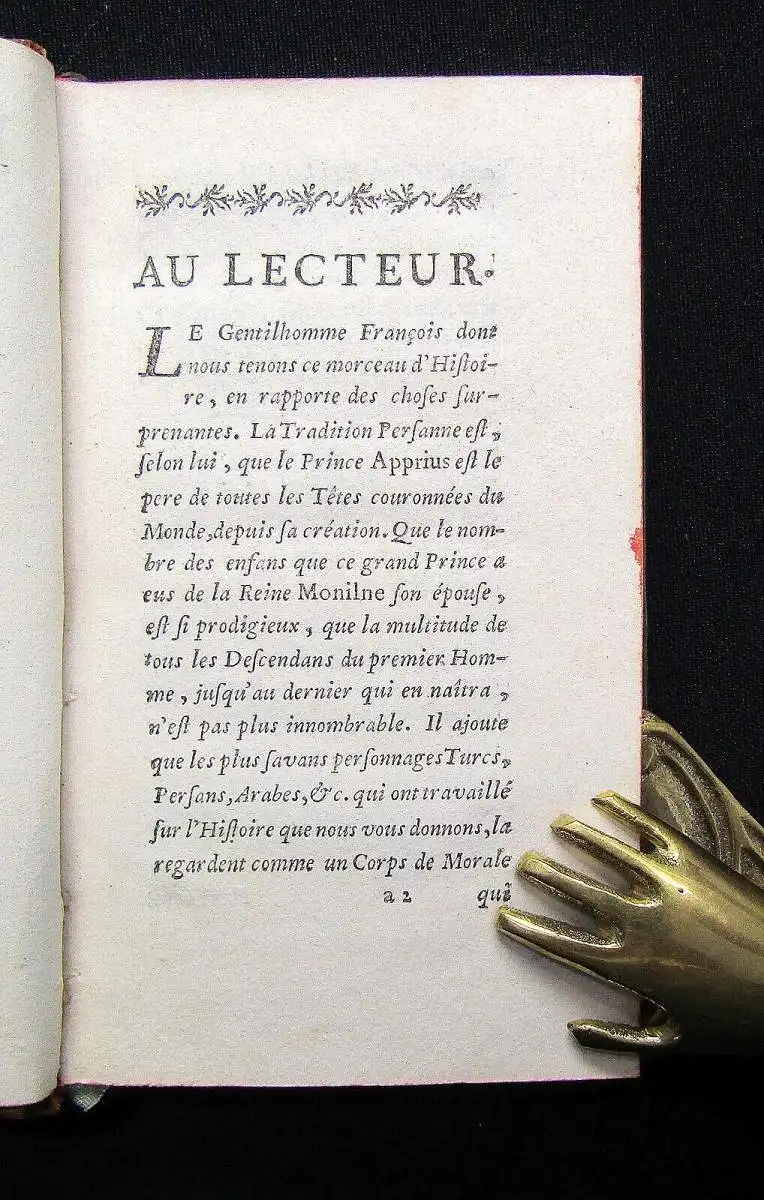 AU LECTEUR.
LE Gentilhomme François dont
nous tenons ce morceau d'Hiſtoi-
re, en rapporte des choſes ſur-
prenantes. La Tradition Perſanne eſt,
ſelon lui, que le Prince Apprius eſt le
pere de toutes les Têtes couronnées du
Monde, depuis ſa création. Que le nom-
bre des enfans que ce grand Prince a
eus de la Reine Monilne ſon épouſe,
eſt ſi prodigieux, que la multitude de
tous les Deſcendans du premier Hom-
me, juſqu'au dernier qui en naîtra,
n'eſt pas plus innombrable. Il ajoute
que les plus ſavans perſonnages Turcs,
Perſans, Arabes, &c. qui ont travaillé
ſur l'Hiſtoire que nous vous donnons, la
regardent comme un Corps de Morale
a 2 qui